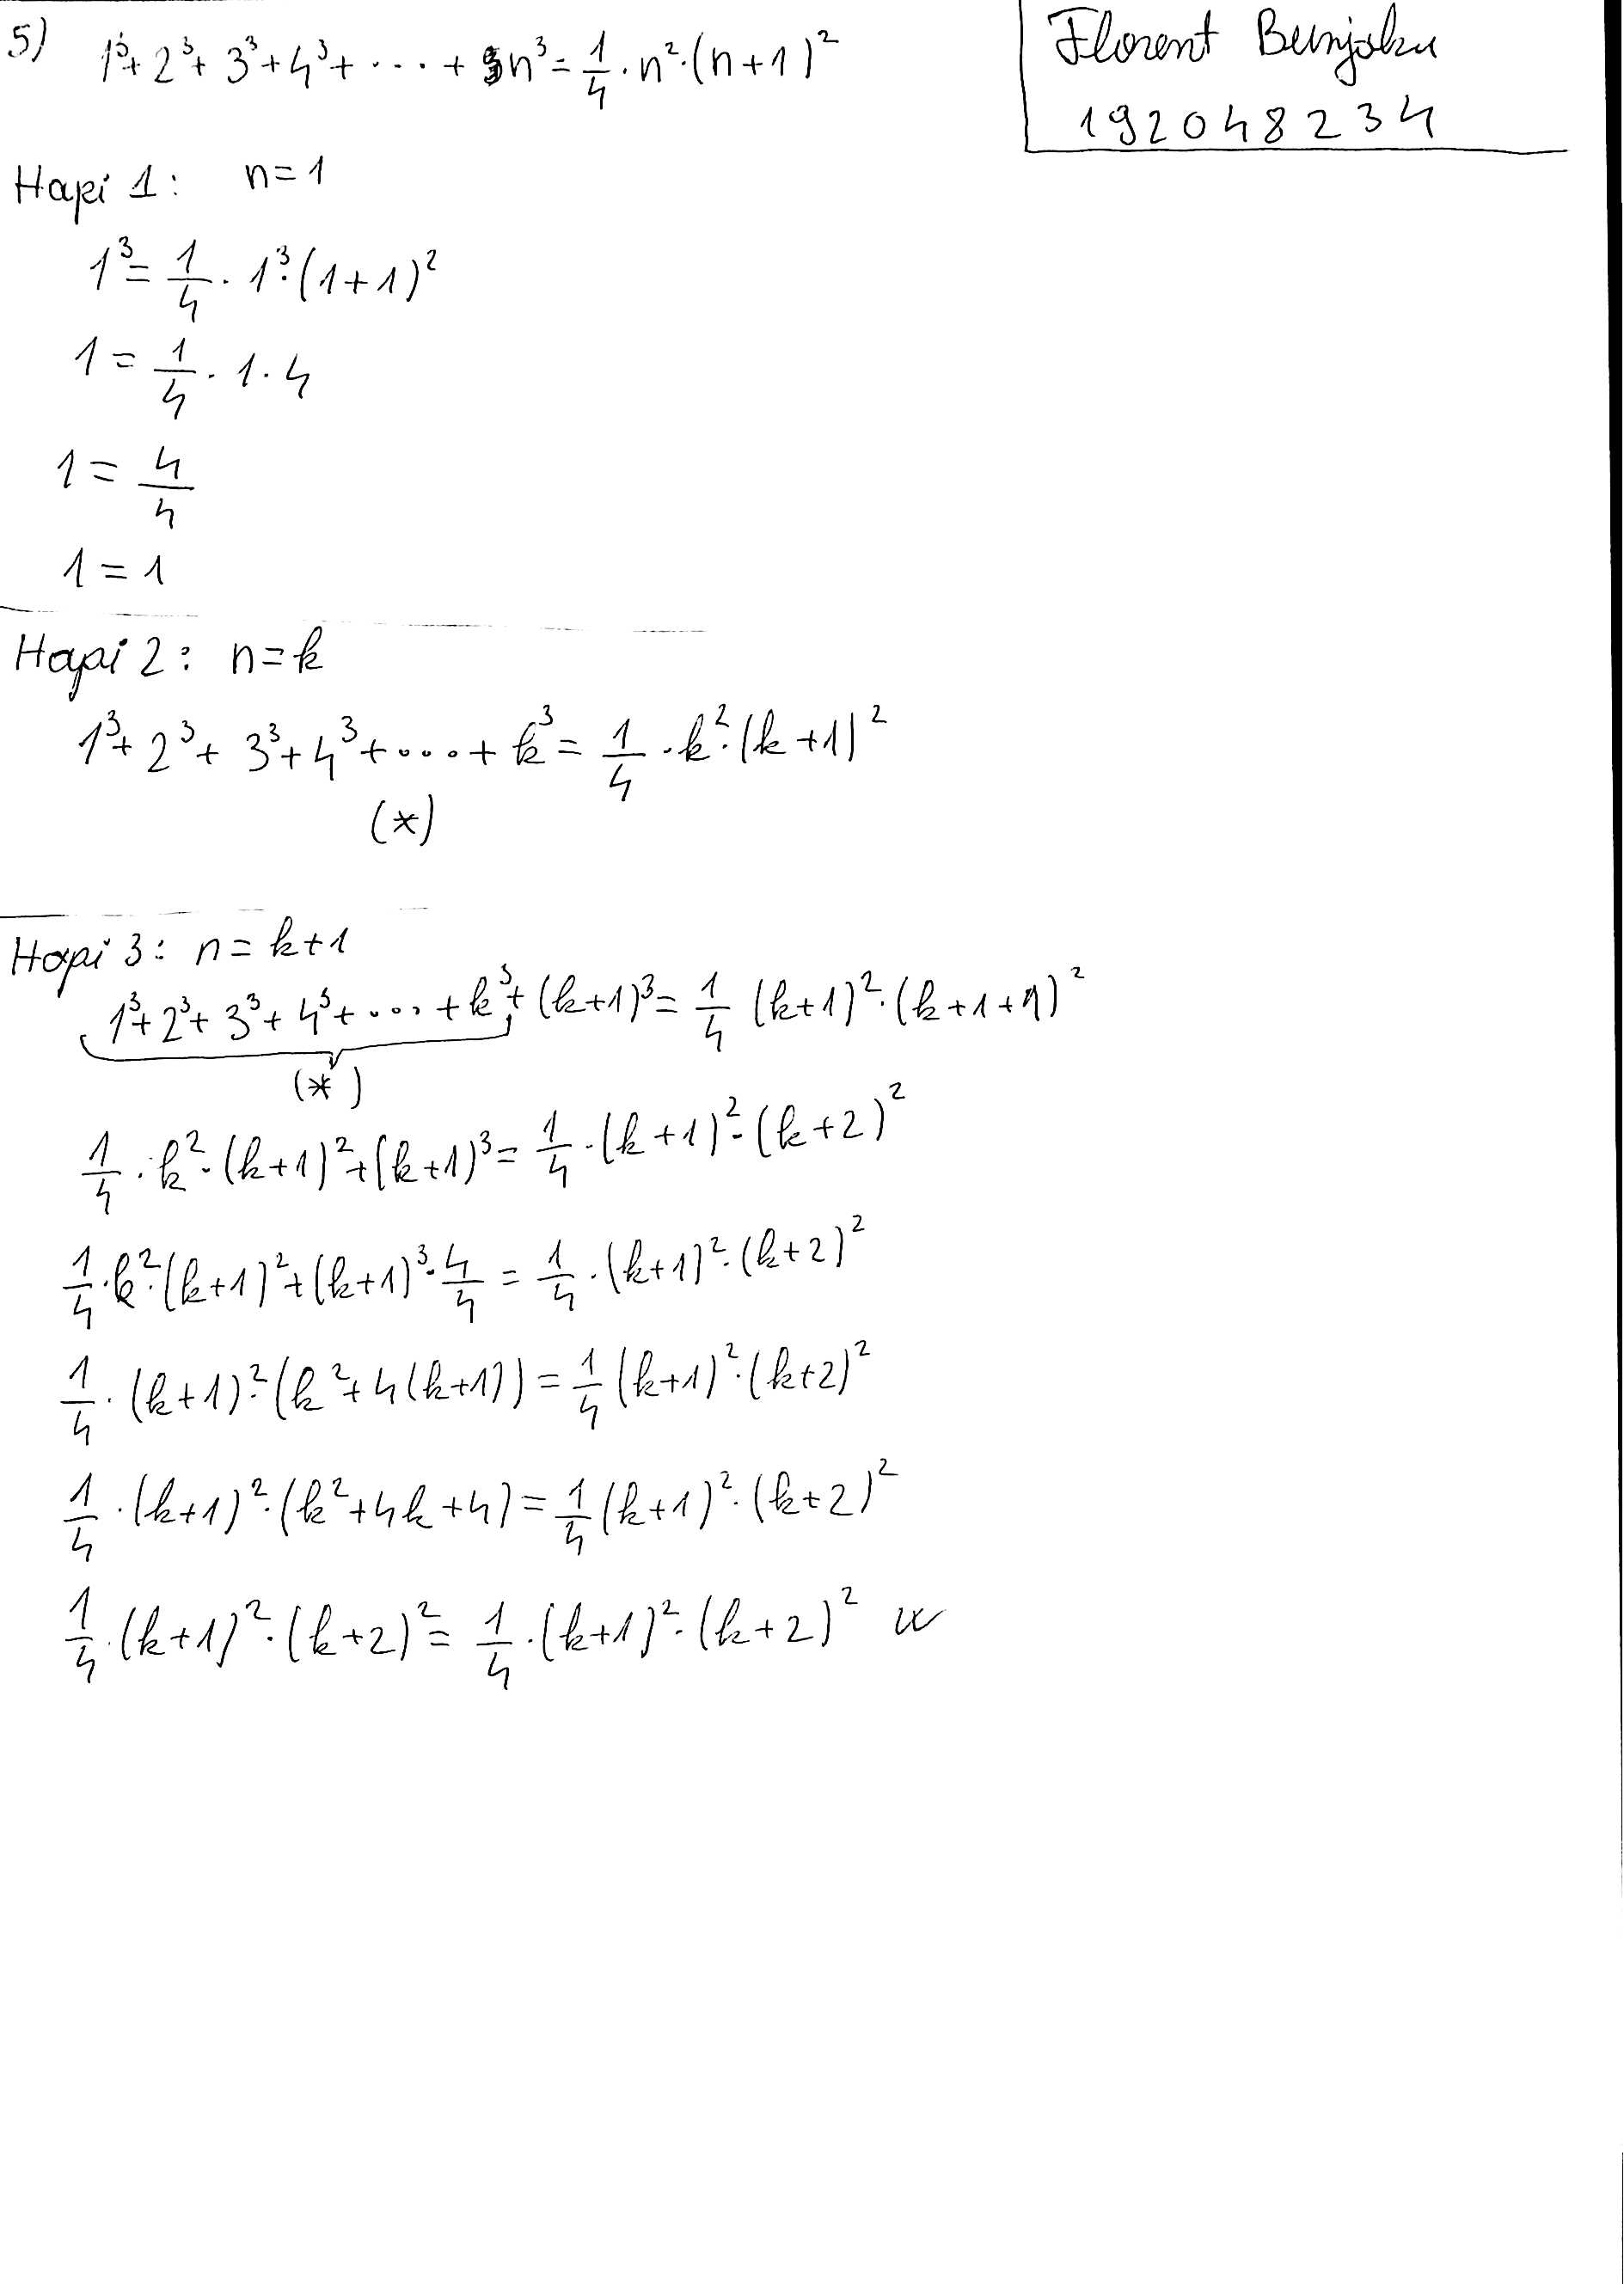 5) 1³+2³+3³+4³+····+n³=1/4·n²·(n+1)²
Florent Bunjaku
192048234
Hapi 1: n=1
1³=1/4·1³·(1+1)²
1=1/4·1·4
1=4/4
1=1
Hapi 2: n=k
1³+2³+3³+4³+····+k³=1/4·k²·(k+1)²
(*)
Hapi 3: n=k+1
1³+2³+3³+4³+····+k³+(k+1)³=1/4(k+1)²·(k+1+1)²
(*)
1/4·k²·(k+1)²+(k+1)³=1/4·(k+1)²·(k+2)²
1/4·k²·(k+1)²+(k+1)³·4/4=1/4·(k+1)²·(k+2)²
1/4·(k+1)²·(k²+4(k+1))=1/4(k+1)²·(k+2)²
1/4·(k+1)²·(k²+4k+4)=1/4(k+1)²·(k+2)²
1/4·(k+1)²·(k+2)²=1/4·(k+1)²·(k+2)²